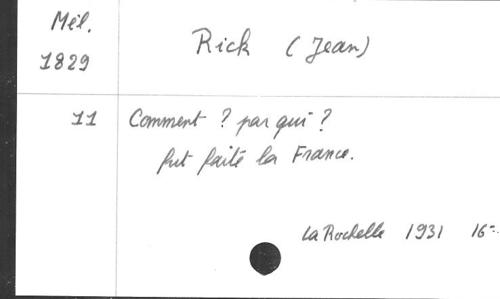 Mél.
1829
Rick (Jean)
11
Comment ? par qui ?
fut faite la France.
La Rochelle 1931 16°.